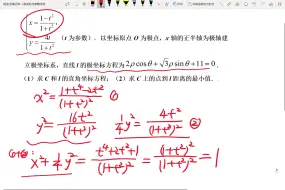 x=\frac{1-t^2}{1+t^2},
y=\frac{4t}{1+t^2}
(t 为参数). 以坐标原点 O 为极点, x 轴的正半轴为极轴建
立极坐标系, 直线 l 的极坐标方程为 2ρcosθ+√3ρsinθ+11=0.
(1) 求 C 和 l 的直角坐标方程; (2) 求 C 上的点到 l 距离的最小值.
x²=\frac{1+t⁴-2t²}{(1+t²)²} ①
y²=\frac{16t²}{(1+t²)²} \frac{1}{4}y²=\frac{4t²}{(1+t²)²} ②
①+②: x²+\frac{1}{4}y²=\frac{t⁴+2t²+1}{(1+t²)²}=\frac{(1+t²)²}{(1+t²)²}=1